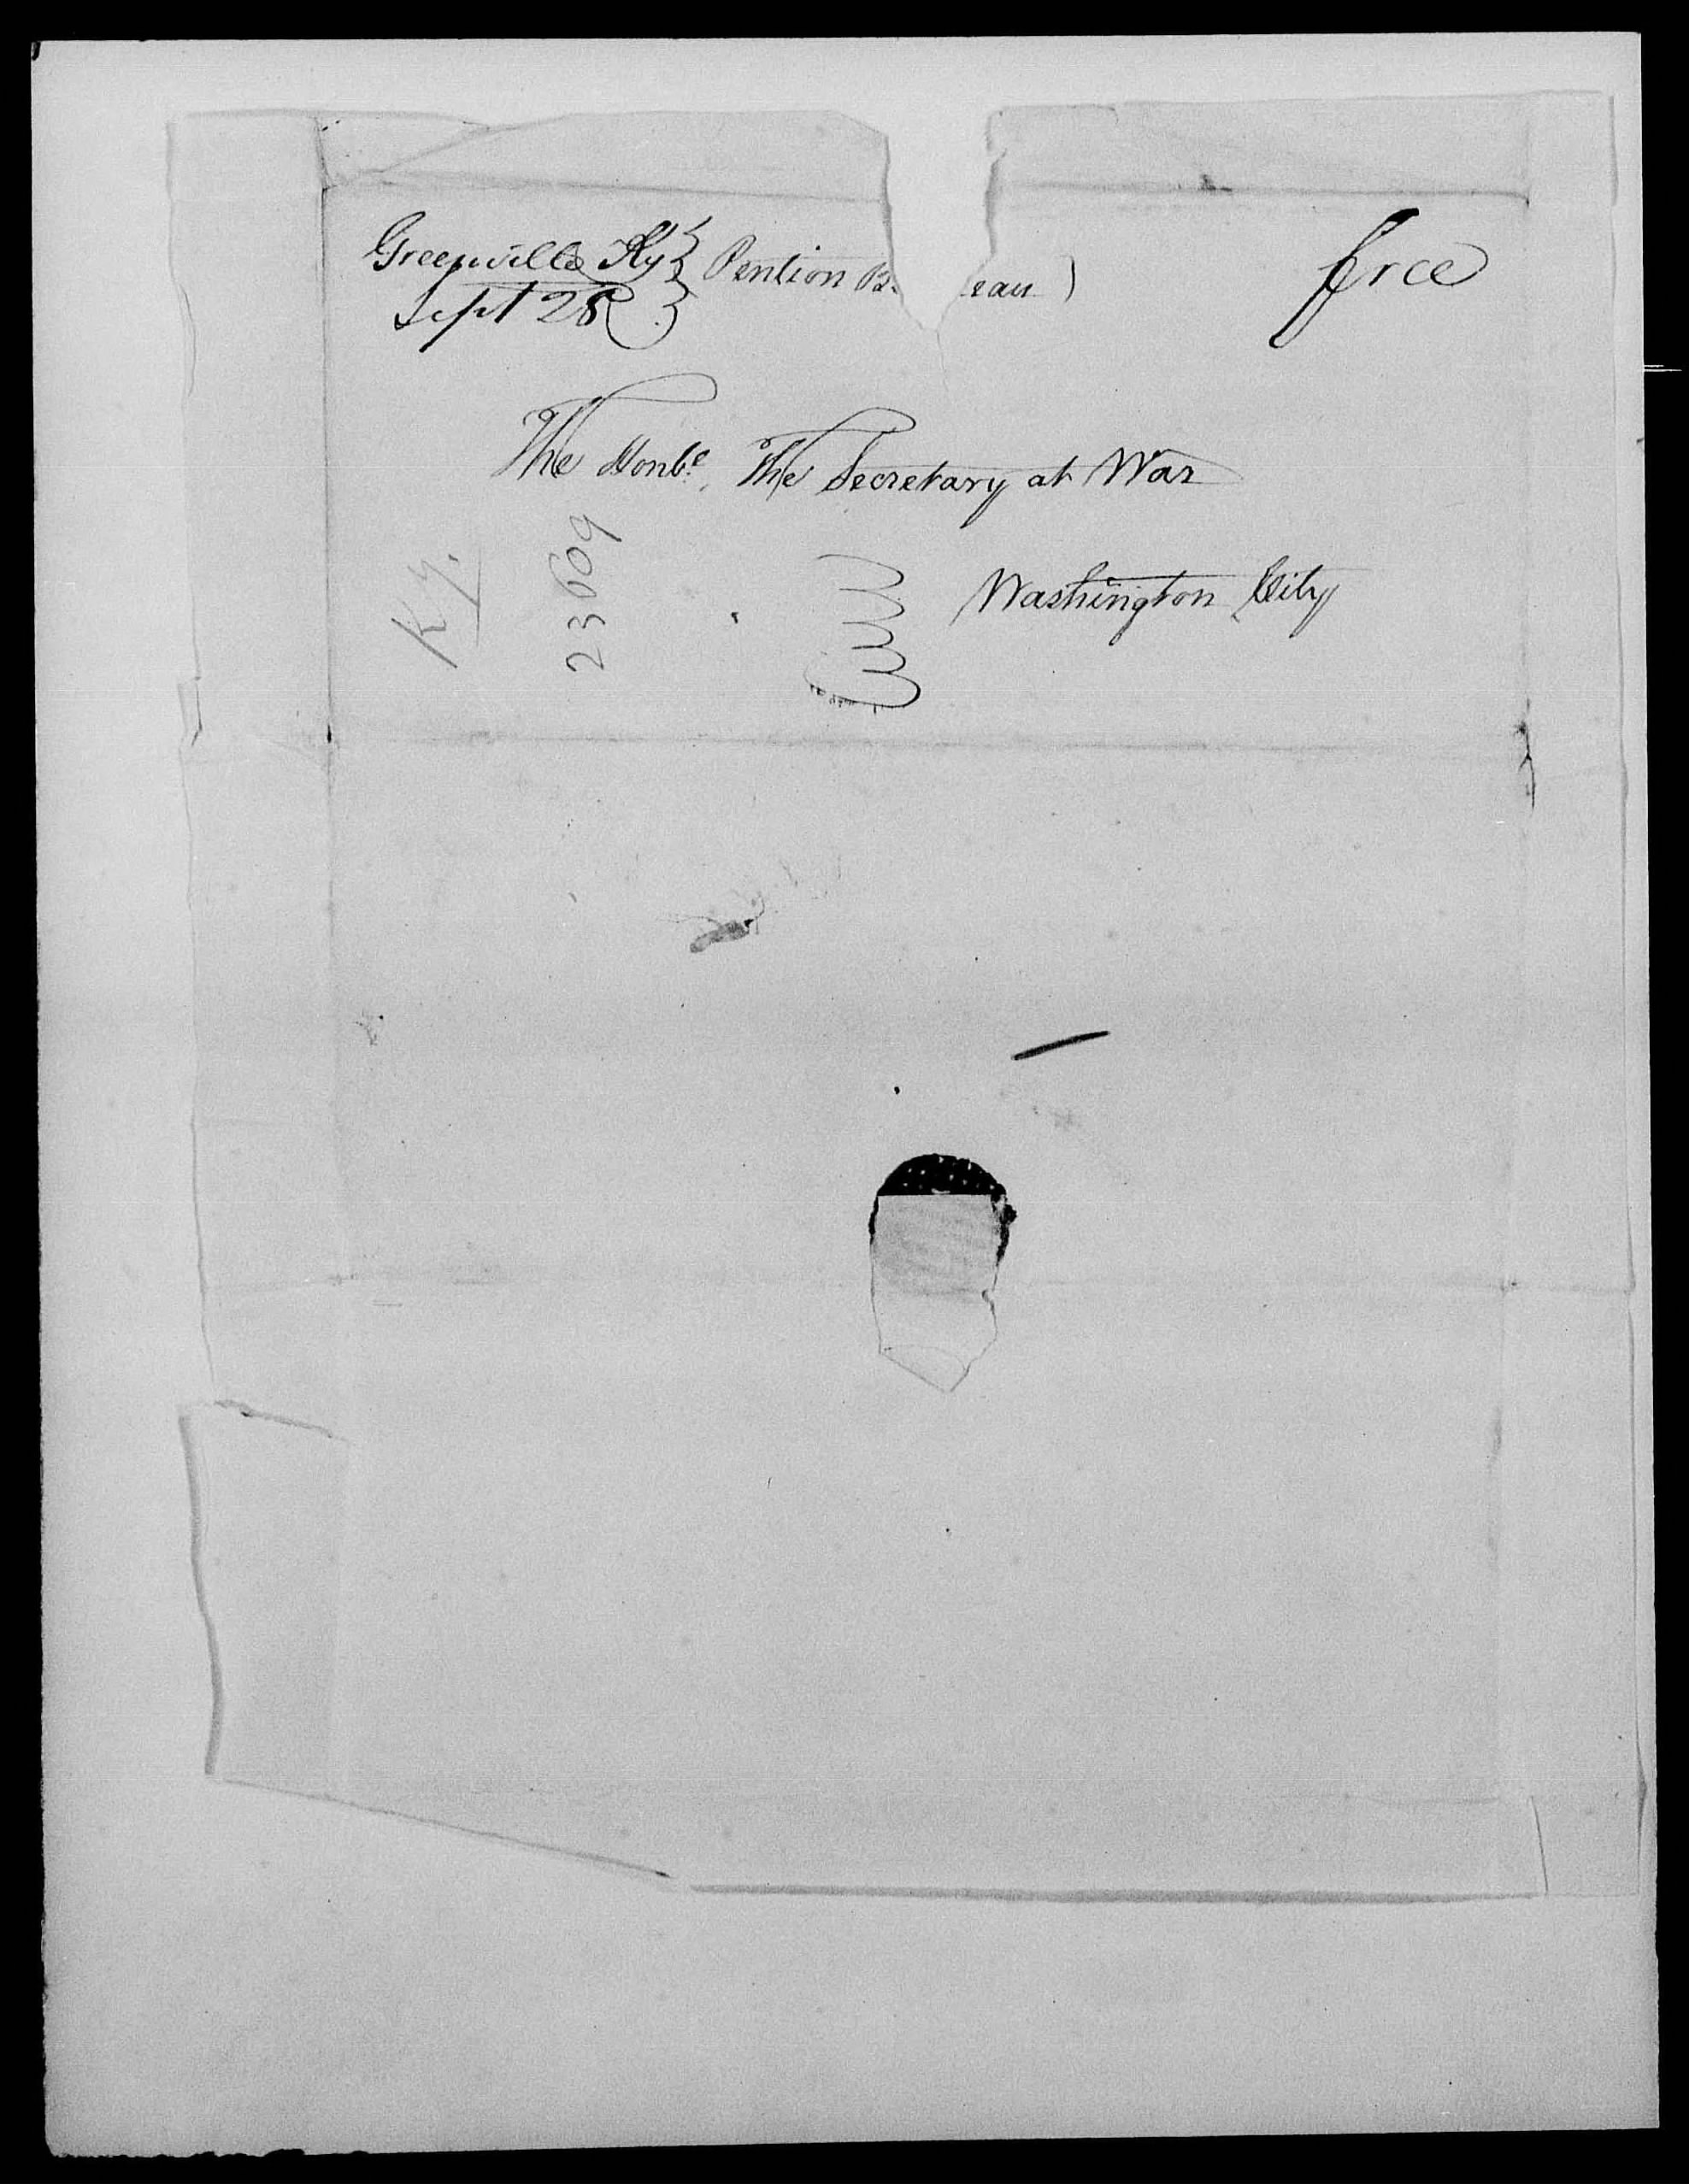 Greenville Ky } Pention B eau ) free
Sept 28 }
The Honble. The Secretary at War
Washington City
Ky.
23609